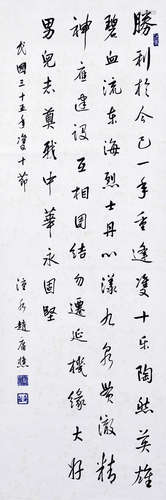 勝利於今已一年重逢雙十樂陶然英雄
碧血流東海烈士丹心漾九泉貫澈精
神應建設互相團結勿遷延機緣大好
男兒志奠我中華永固堅
民國三十五年雙十節